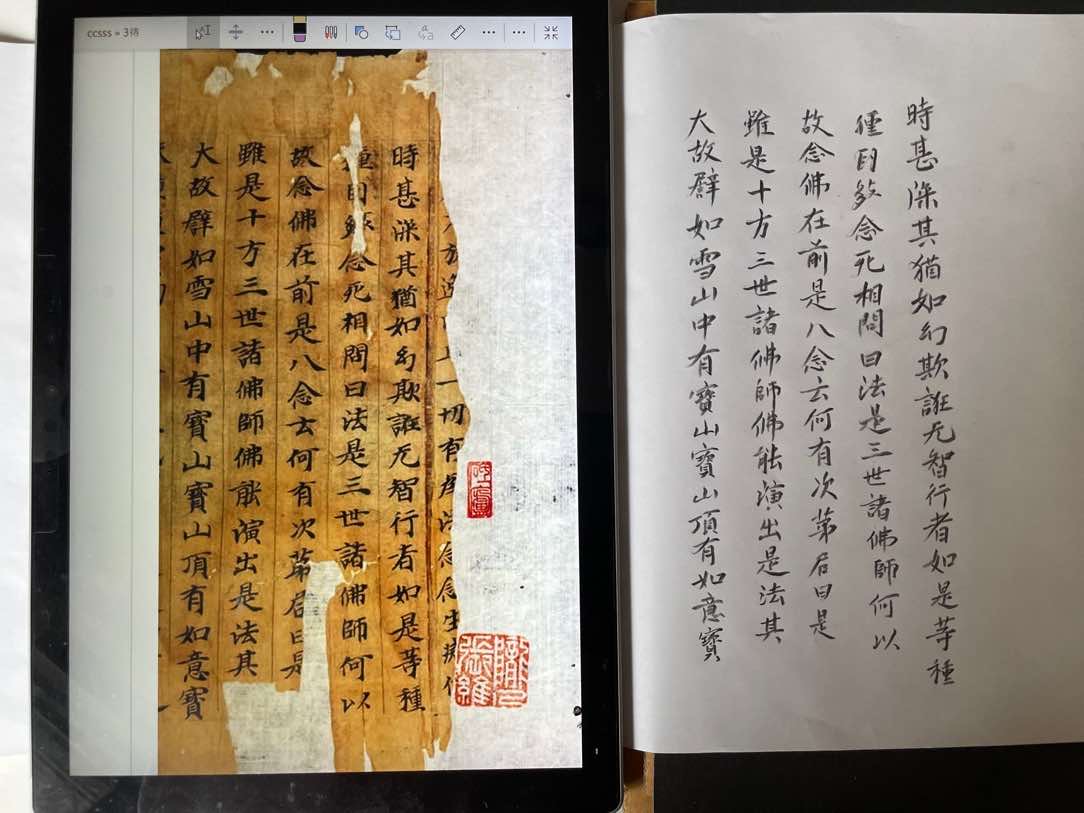 ccsss = 3待
一切有為法念念生
時甚深其猶如幻欺誑无智行者如是等種
種因緣念死相問曰法是三世諸佛師何以
故念佛在前是八念云何有次第答曰是
雖是十方三世諸佛師佛能演出是法其
大故譬如雪山中有寶山寶山頂有如意寶
時甚深其猶如幻欺誑无智行者如是等種
種因緣念死相問曰法是三世諸佛師何以
故念佛在前是八念云何有次第答曰是
雖是十方三世諸佛師佛能演出是法其
大故譬如雪山中有寶山寶山頂有如意寶